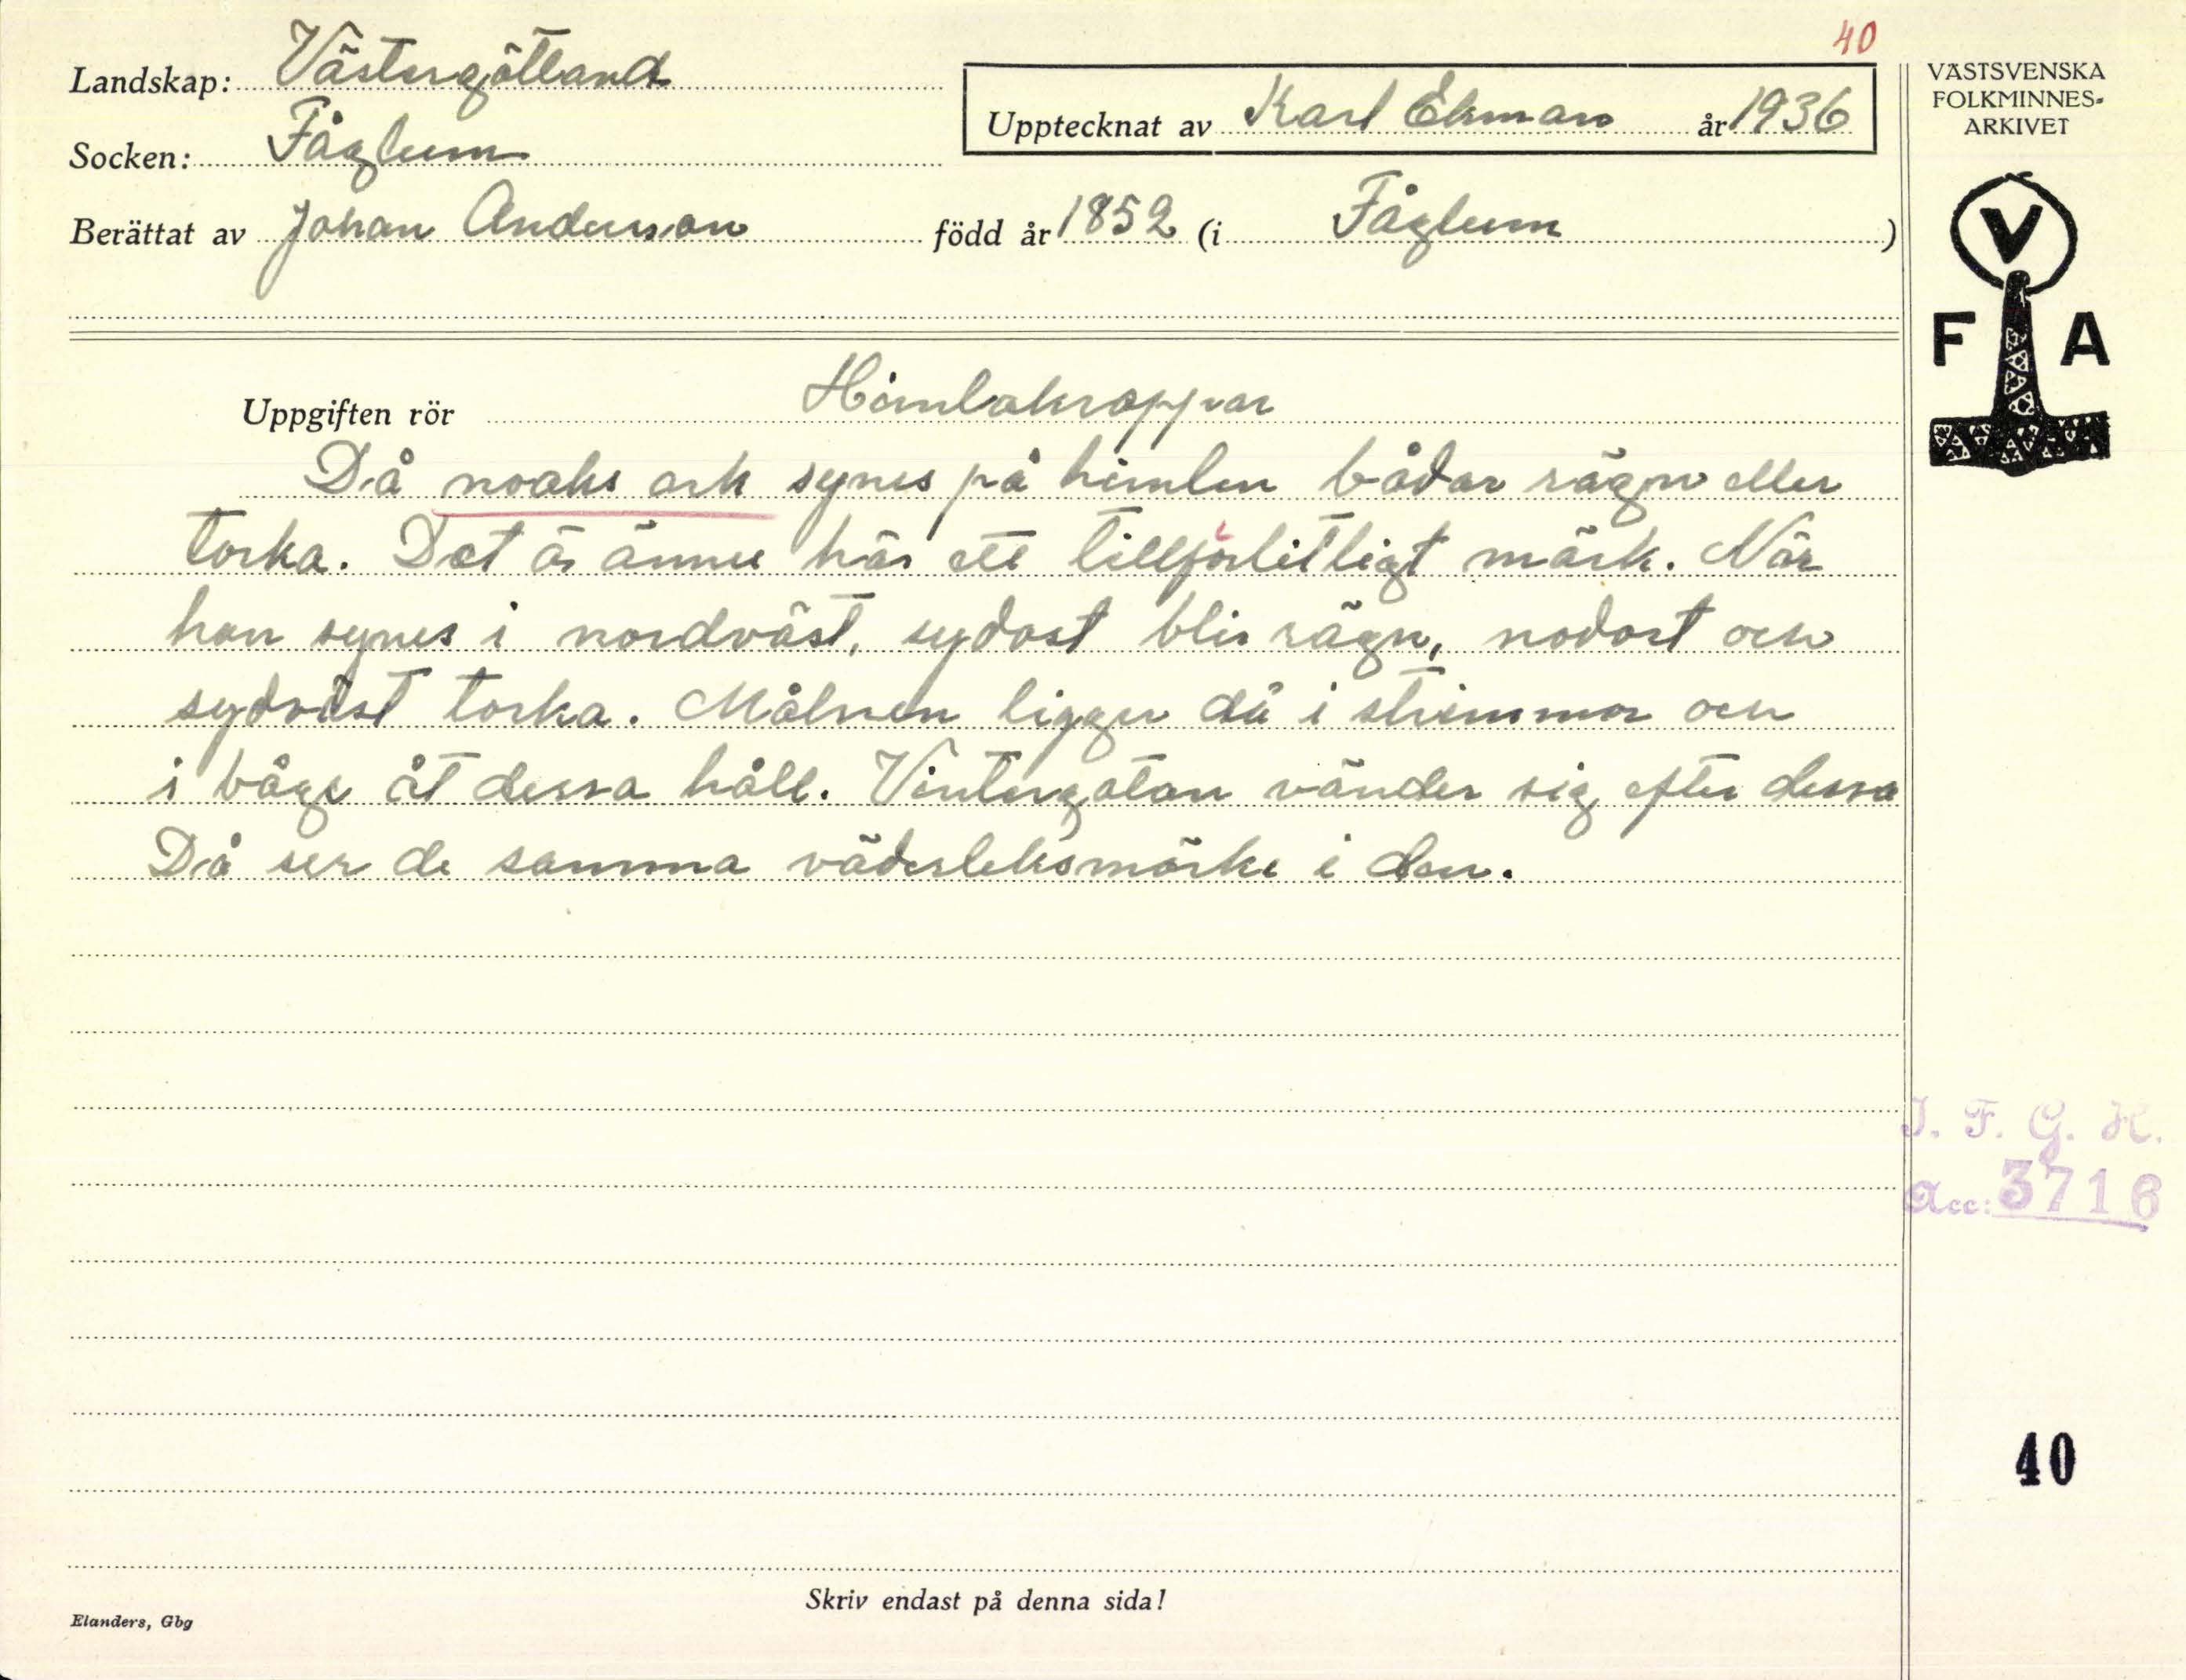 40
Landskap: Västergötland
Socken: Fåglum
Upptecknat av Karl Ekman år 1936
Berättat av Johan Andersson född år 1852 (i Fåglum )
VÄSTSVENSKA
FOLKMINNES-
ARKIVET
V
F A
Uppgiften rör Himlakroppar
Då noaks ark synes på himlen bådar rägn eller
torka. Det är ännu här ett tillförlitligt märk. När
han synes i nordväst, sydost blir rägn, nodost och
sydväst torka. Målnen ligger då i strimmor och
i båge åt dessa håll. Vintergatan vänder sig efter dessa
Då ser de samma väderleksmärke i den.
I. F. G. H.
Acc: 3716
40
Skriv endast på denna sida!
Elanders, Gbg